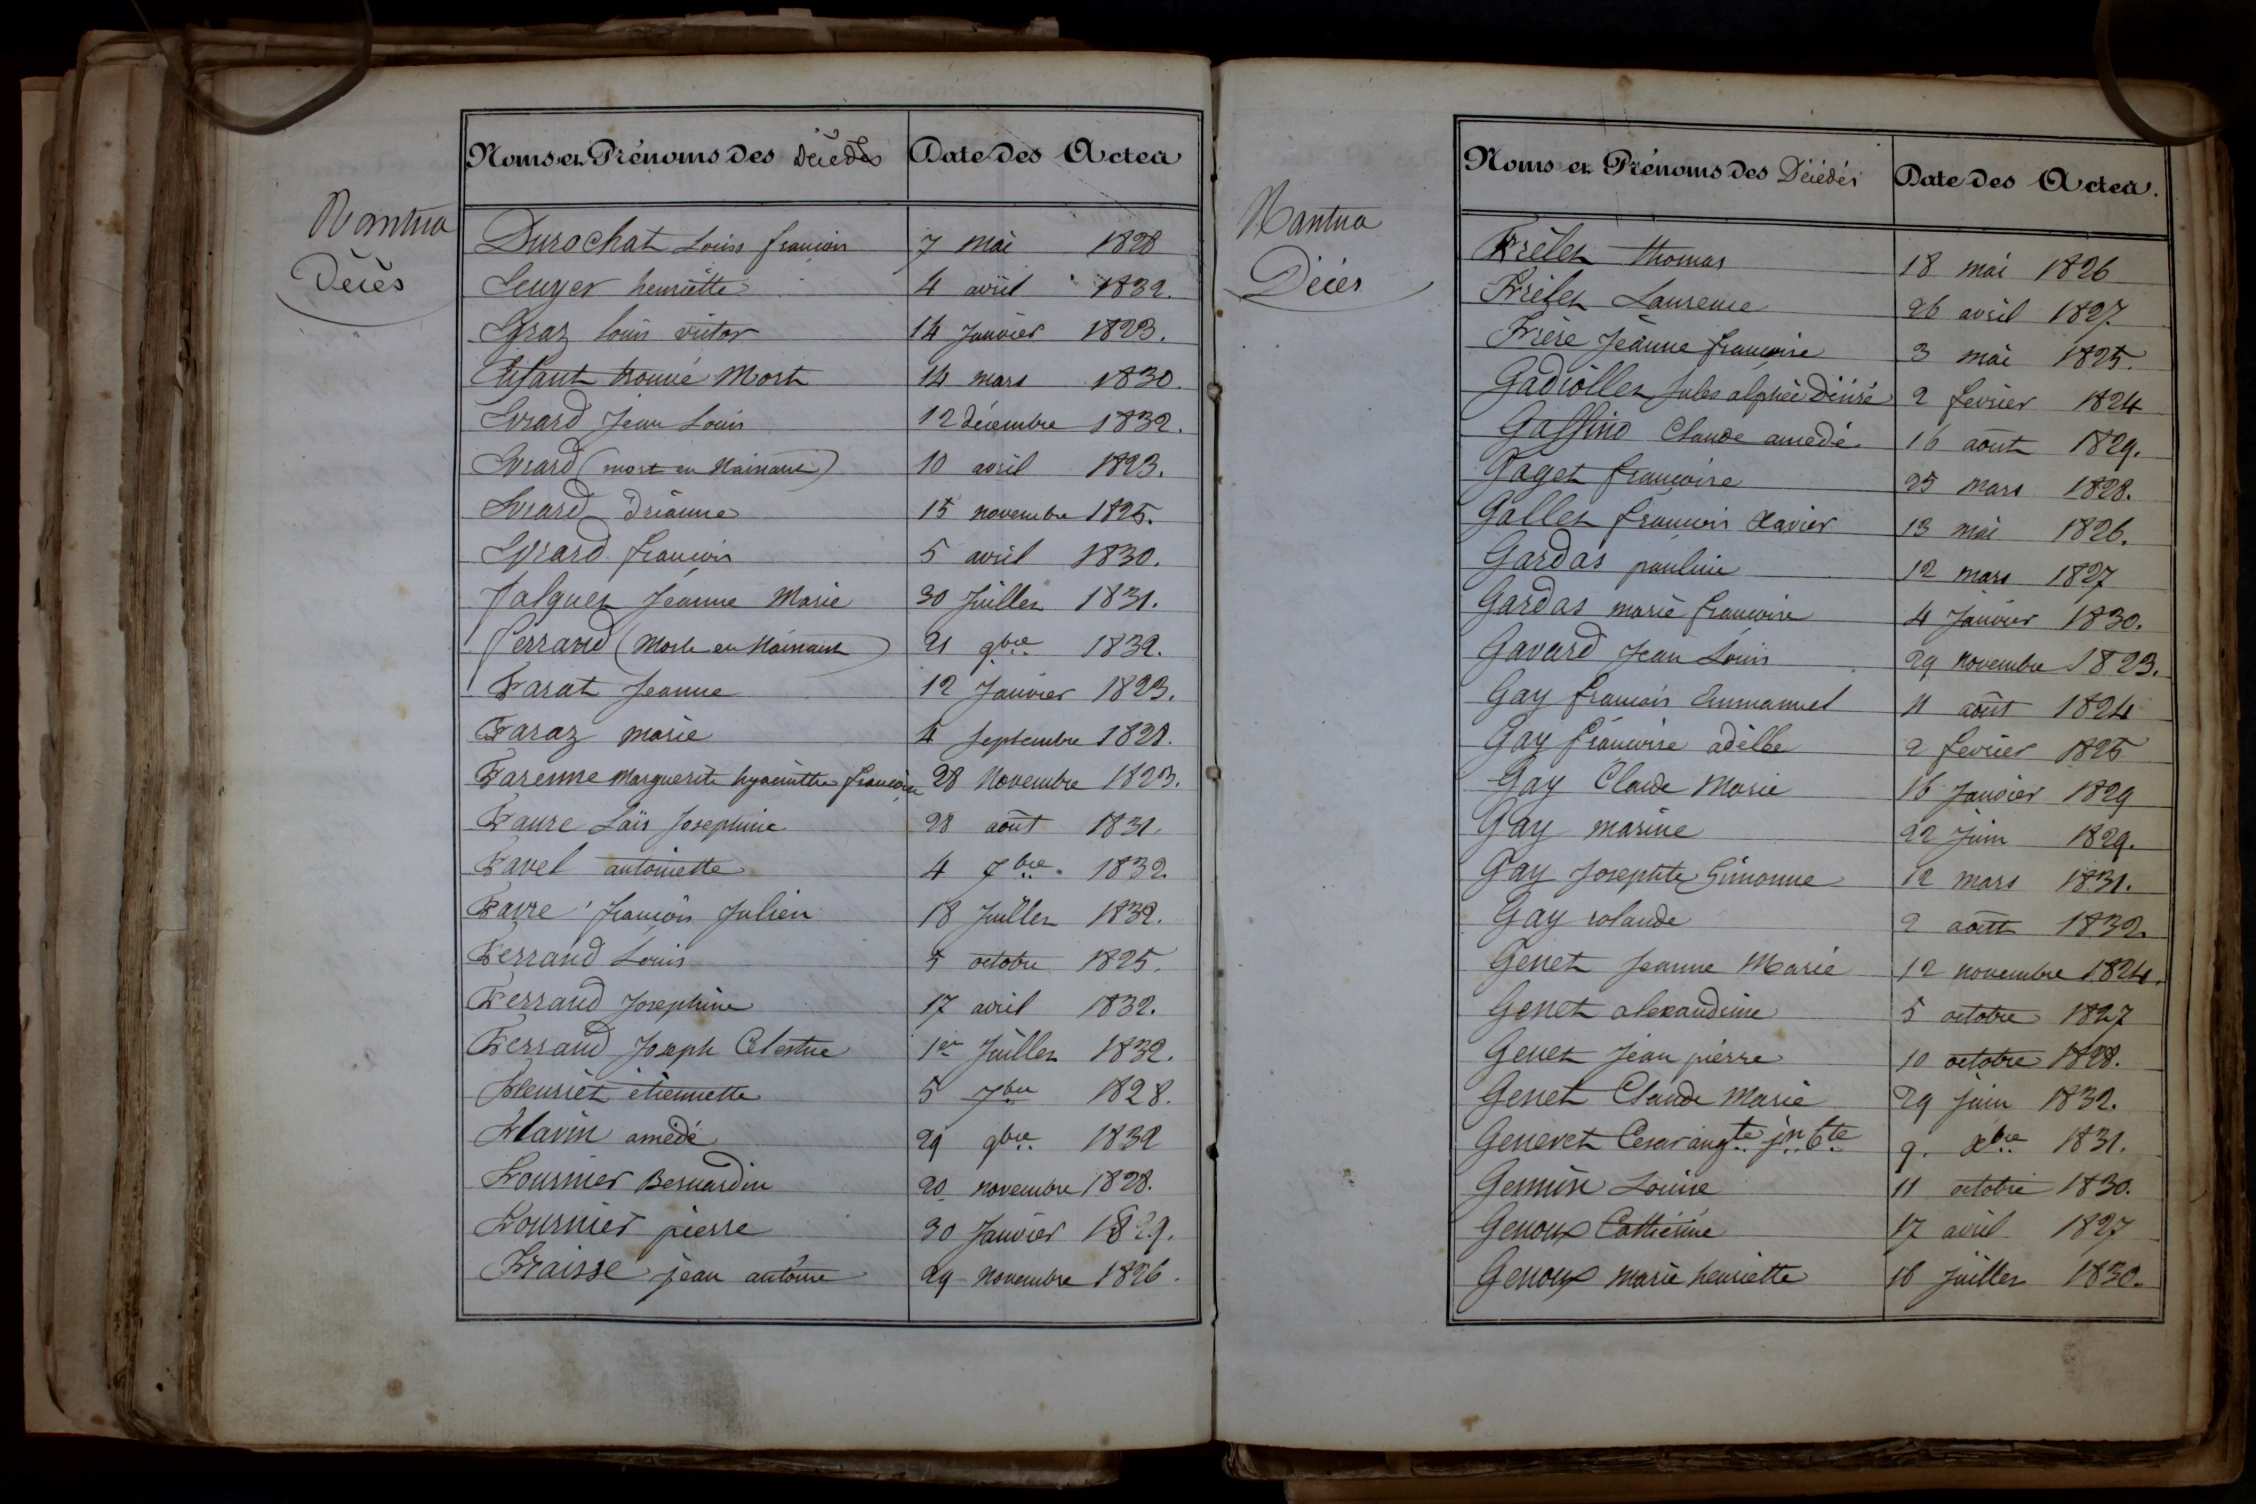 Nantua
Décès
Noms et Prénoms des Décédés Date des Actes
Durochat Louis françois 7 mai 1828
Enyer henriette 4 avril 1832.
Egraz louis victor 14 Janvier 1823.
Enfant trouvé Mort 14 mars 1830.
Evrard Jean Louis 12 décembre 1832.
Evrard (mort en Naissant) 10 avril 1823.
Evrard Driànne 15 novembre 1825.
Evrard françois 5 avril 1830.
Falquet Jéanne Marie 30 Juillet 1831.
Ferrand (Morte en Naissant) 21 9bre 1832.
Farat Jeanne 12 Janvier 1823.
Faraz marie 4 Septembre 1828.
Farenne Marguerite hyacinthe françoise 28 Novembre 1823.
Faure Laïs Josephine 28 août 1831.
Favel antoinette 4 7bre 1832.
Favre françois Julien 18 Juillet 1832.
Ferrand Louis 5 octobre 1825.
Ferrand Josephine 17 avril 1832.
Ferrand Joseph Celestin 1er Juillet 1832.
Fleuriet étiennette 5 7bre 1828.
Flavin amédé 29 9bre 1832
Fournier Bernardin 20 novembre 1828.
Fournier pierre 30 Janvier 1829.
Fraisse jean antoine 29 novembre 1826.
Nantua
Décès
Noms et Prénoms des Décédés Date des Actes.
Frèlet thomas 18 mai 1826
Frèlet Laurence 26 avril 1827.
Frère Jéanne françoise 3 mai 1825.
Gadiollet Jules alphée Désiré 2 février 1824
Gaffino Claude amédé 16 août 1829.
Gaget françoise 25 mars 1828.
Gallet françois Xavier 13 mai 1826.
Gardas pauline 12 mars 1827
Gardas marie françoise 4 Janvier 1830.
Gavard Jean Louis 29 novembre 1823.
Gay françois Emmanuel 11 août 1824
Gay françoise adèlle 2 février 1825
Gay Claude Marie 16 Janvier 1829
Gay marine 22 Juin 1829.
Gay Josephte Simonne 12 mars 1831.
Gay rolande 2 août 1832.
Genet Jeanne Marie 12 novembre 1824.
Genet alexandrine 5 octobre 1827
Genet jean pierre 10 octobre 1828.
Genet Claude Marie 29 juin 1832.
Genevet Cesar augte jn bte 9. Xbre 1831.
Gennin Louise 11 octobre 1830.
Genoux Cathérine 17 avril 1827
Genoux marie henriette 16 Juillet 1830.